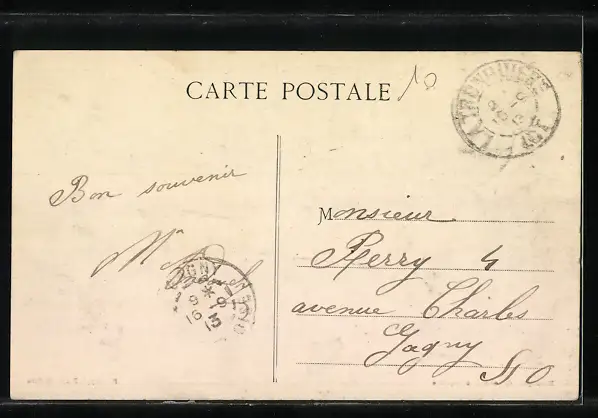 CARTE POSTALE
10
Bon souvenir
Monsieur
Perry 4
avenue Charles
Gagny
S O